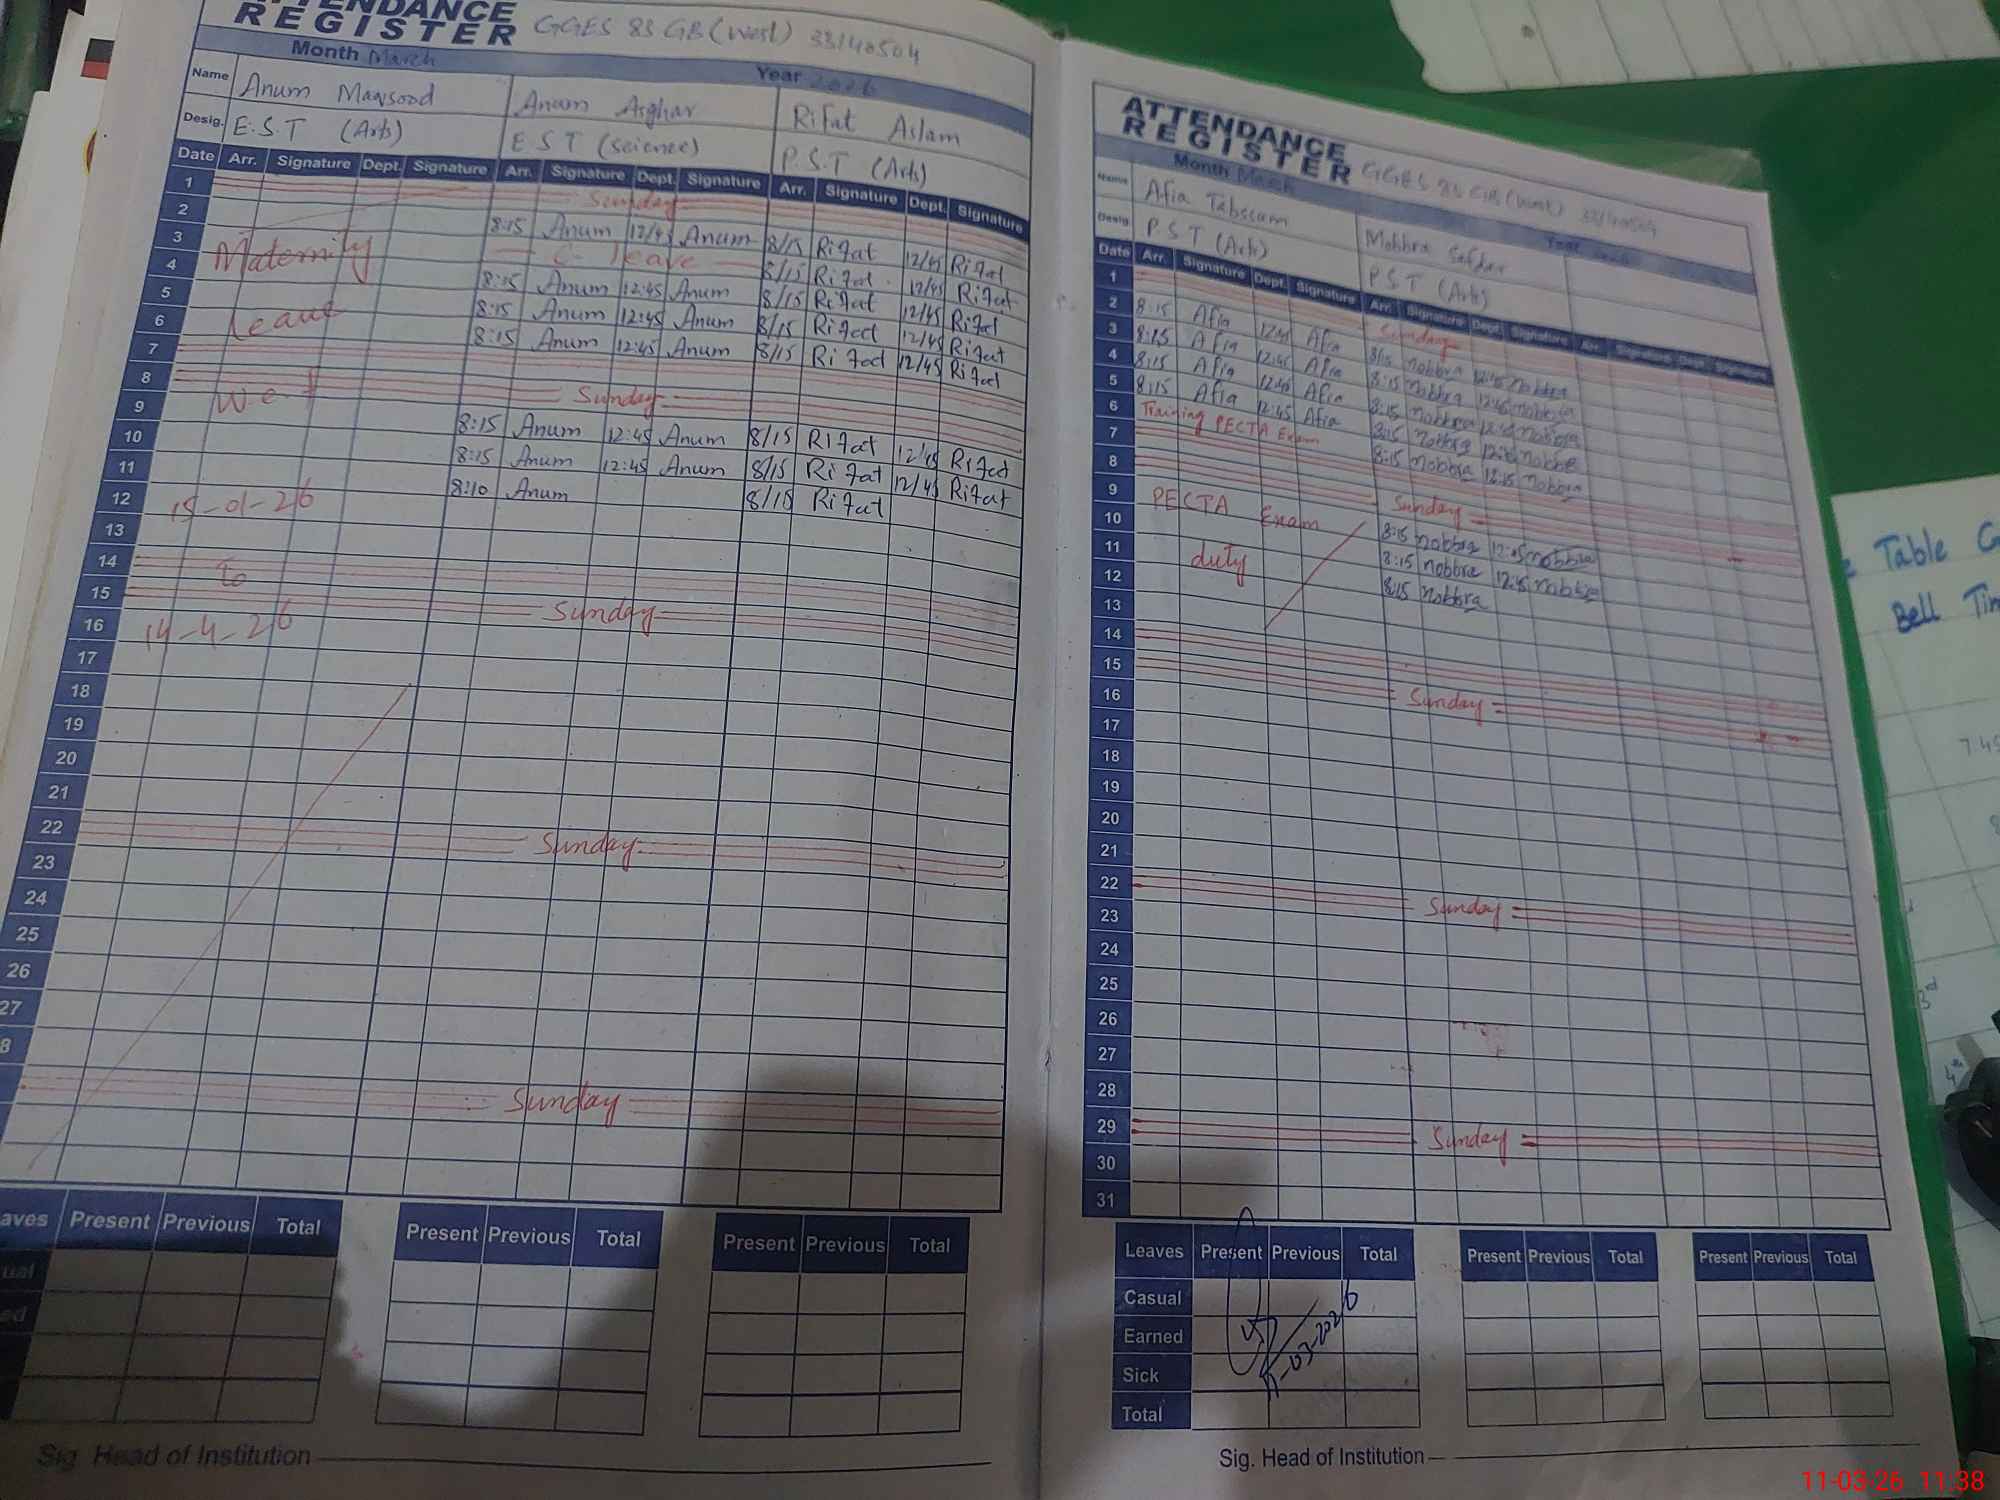 ATTENDANCE
REGISTER GGES 83 GB (West) 33140504
Month March Year 2026
Name Anum Maqsood Anum Asghar Rifat Aslam
Desig. E.S.T (Arts) E S T (Science) P.S.T (Arts)
Date Arr. Signature Dept. Signature Arr. Signature Dept. Signature Arr. Signature Dept. Signature
1 Sunday
2 8:15 Anum 12/45 Anum 8/15 Rifat 12/45 Rifat
3 Maternity C- leave 8/15 Rifat 12/45 Rifat
4 8:15 Anum 12:45 Anum 8/15 Rifat 12/45 Rifat
5 Leave 8:15 Anum 12:45 Anum 8/15 Rifat 12/45 Rifat
6 8:15 Anum 12:45 Anum 8/15 Rifat 12/45 Rifat
7
8 w.e.f Sunday
9 8:15 Anum 12:45 Anum 8/15 Rifat 12/45 Rifat
10 8:15 Anum 12:45 Anum 8/15 Rifat 12/45 Rifat
11 8:10 Anum 8/15 Rifat
12 15-01-26
13
14 To
15 Sunday
16 14-4-26
17
18
19
20
21
22 Sunday
23
24
25
26
27
8
Sunday
aves Present Previous Total Present Previous Total Present Previous Total
ual
ed
Sig. Head of Institution
ATTENDANCE
REGISTER GGES 83 GB (West) 33140504
Month March Year
Name Afia Tabssam Mobbra Safdar
Desig. P.S.T (Arts) P.S.T (Arts)
Date Arr. Signature Dept. Signature Arr. Signature Dept. Signature Arr. Signature Dept. Signature
1 Sunday
2 8:15 Afia 12:45 Afia 8:15 mobbra 12:45 mobbra
3 8:15 Afia 12:45 Afia 8:15 mobbra 12:45 mobbra
4 8:15 Afia 12:45 Afia 8:15 mobbra 12:45 mobbra
5 8:15 Afia 12:45 Afia 8:15 mobbra 12:45 mobbra
6 Training PECTA Exam 8:15 mobbra 12:15 mobbra
7
8 Sunday
9 PECTA Exam 8:15 mobbra 12:45 mobbra
10 8:15 mobbra 12:45 mobbra
11 duty 8:15 mobbra
12
13
14
15 Sunday
16
17
18
19
20
21
22 Sunday
23
24
25
26
27
28
29 Sunday
30
31
Leaves Present Previous Total Present Previous Total Present Previous Total
Casual
Earned
Sick
Total
11-03-2026
Sig. Head of Institution
Table
Bell
7:45
3rd
4th
11-03-26 11:38